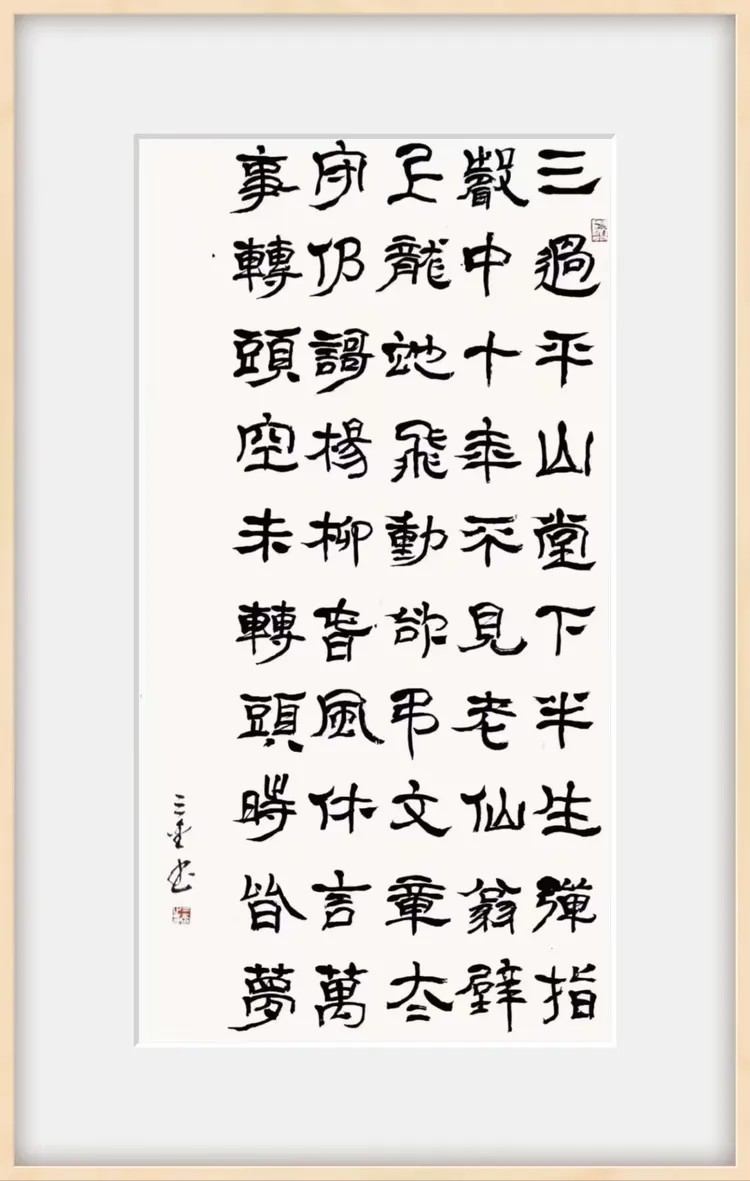 三過平山堂下半生彈指
聲中十年不見老仙翁壁
上龍虵飛動欲弔文章太
守仍謌楊柳春風休言萬
事轉頭空未轉頭時皆夢
书